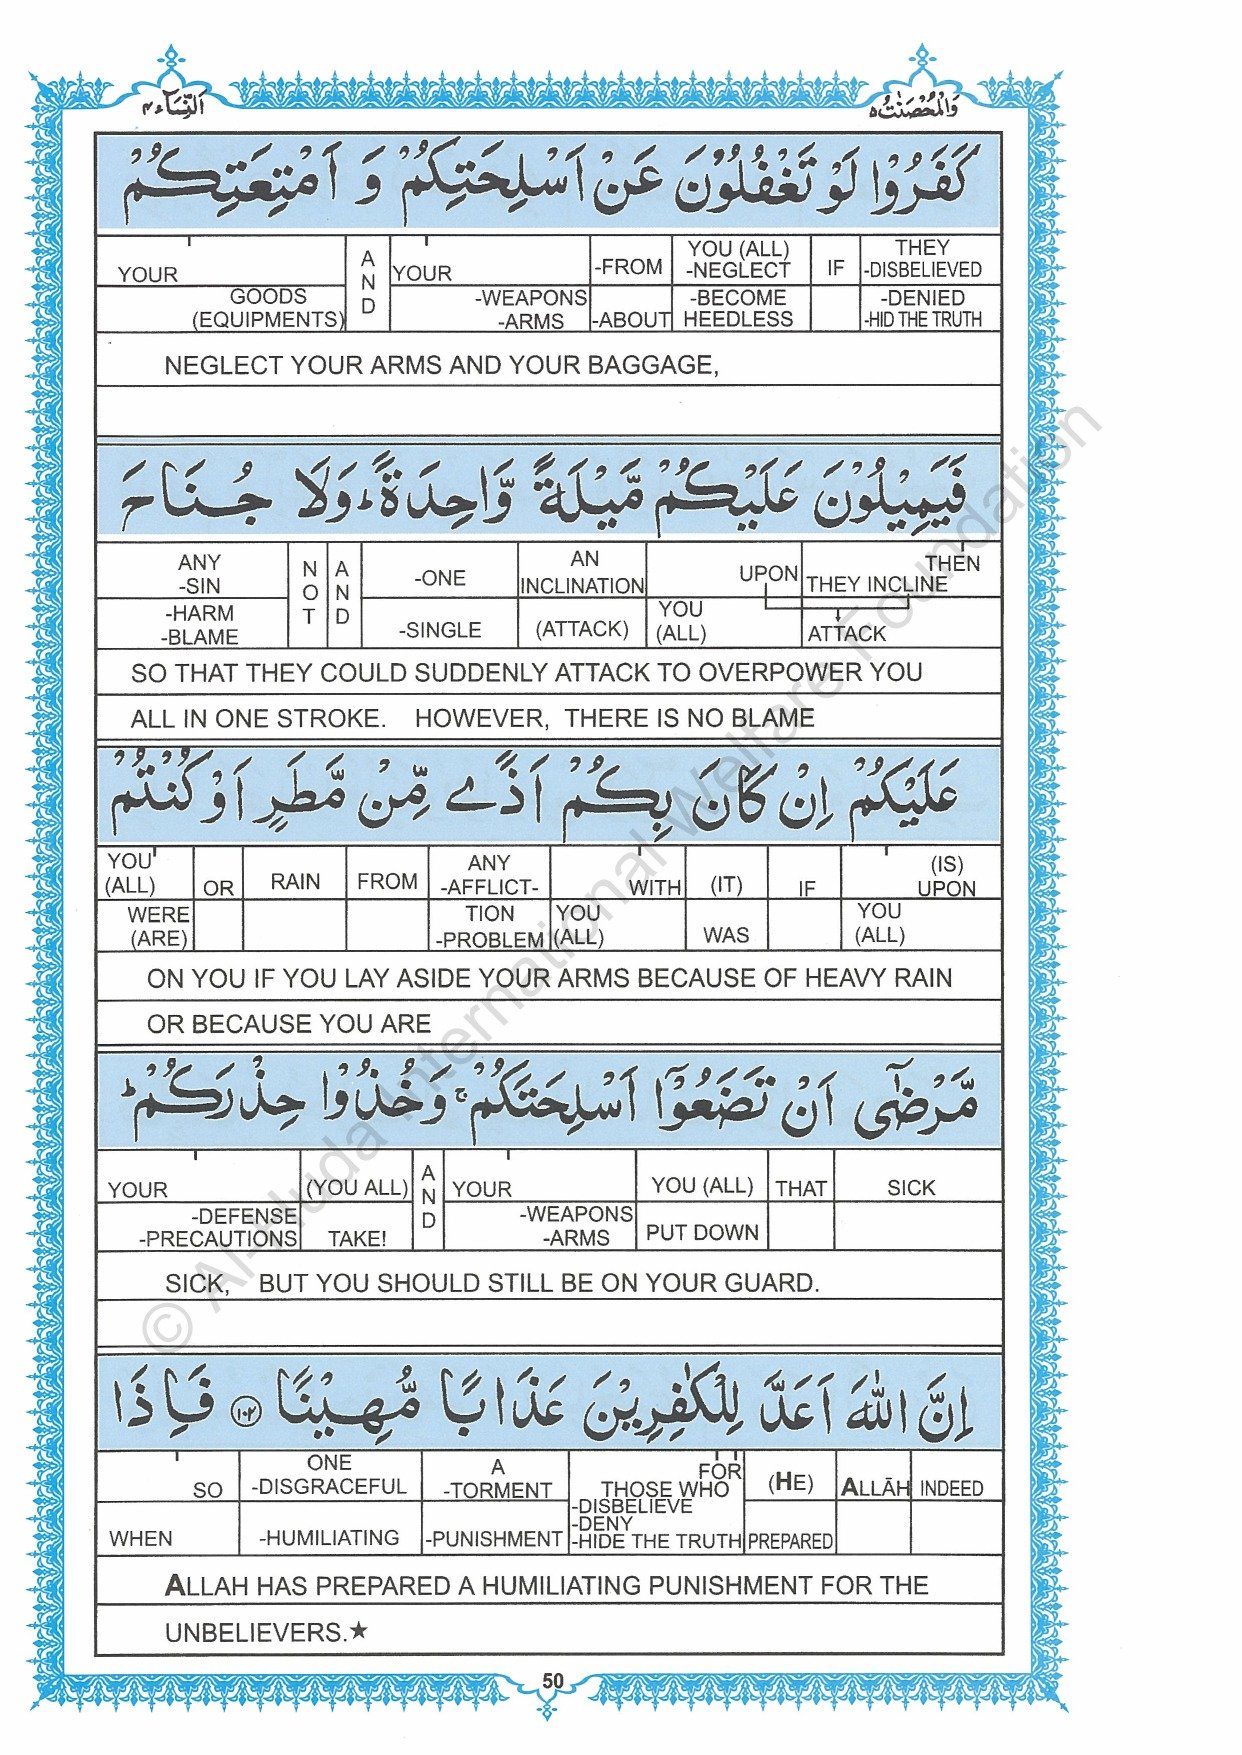 النساء ٤
والمحصنت ٥
كَفَرُوْا لَوْ تَغْفُلُوْنَ عَنْ اَسْلِحَتِكُمْ وَ اَمْتِعَتِكُمْ
YOUR GOODS (EQUIPMENTS) AND YOUR -WEAPONS -ARMS -FROM -ABOUT YOU (ALL) -NEGLECT -BECOME HEEDLESS IF THEY -DISBELIEVED -DENIED -HID THE TRUTH
NEGLECT YOUR ARMS AND YOUR BAGGAGE,
فَيَمِيْلُوْنَ عَلَيْكُمْ مَّيْلَةً وَّاحِدَةً ؕ وَلَا جُنَاحَ
ANY -SIN -HARM -BLAME NOT AND -ONE -SINGLE AN INCLINATION (ATTACK) UPON YOU (ALL) THEN THEY INCLINE ATTACK
SO THAT THEY COULD SUDDENLY ATTACK TO OVERPOWER YOU
ALL IN ONE STROKE. HOWEVER, THERE IS NO BLAME
عَلَيْكُمْ اِنْ كَانَ بِكُمْ اَذًى مِّنْ مَّطَرٍ اَوْ كُنْتُمْ
YOU (ALL) WERE (ARE) OR RAIN FROM ANY -AFFLICT- TION -PROBLEM WITH YOU (ALL) (IT) WAS IF (IS) UPON YOU (ALL)
ON YOU IF YOU LAY ASIDE YOUR ARMS BECAUSE OF HEAVY RAIN
OR BECAUSE YOU ARE
مَّرْضٰۤى اَنْ تَضَعُوْۤا اَسْلِحَتَكُمْ ۚ وَخُذُوْا حِذْرَكُمْ ؕ
YOUR -DEFENSE -PRECAUTIONS (YOU ALL) TAKE! AND YOUR -WEAPONS -ARMS YOU (ALL) PUT DOWN THAT SICK
SICK, BUT YOU SHOULD STILL BE ON YOUR GUARD.
اِنَّ اللّٰهَ اَعَدَّ لِلْكٰفِرِيْنَ عَذَابًا مُّهِيْنًا ۝١٠٢ فَاِذَا
SO WHEN ONE -DISGRACEFUL -HUMILIATING A -TORMENT -PUNISHMENT FOR THOSE WHO -DISBELIEVE -DENY -HIDE THE TRUTH (HE) PREPARED ALLĀH INDEED
ALLAH HAS PREPARED A HUMILIATING PUNISHMENT FOR THE
UNBELIEVERS.★
50
© Al-Huda International Welfare Foundation